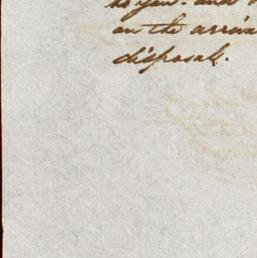 to you. and
on the arriva
disposal.